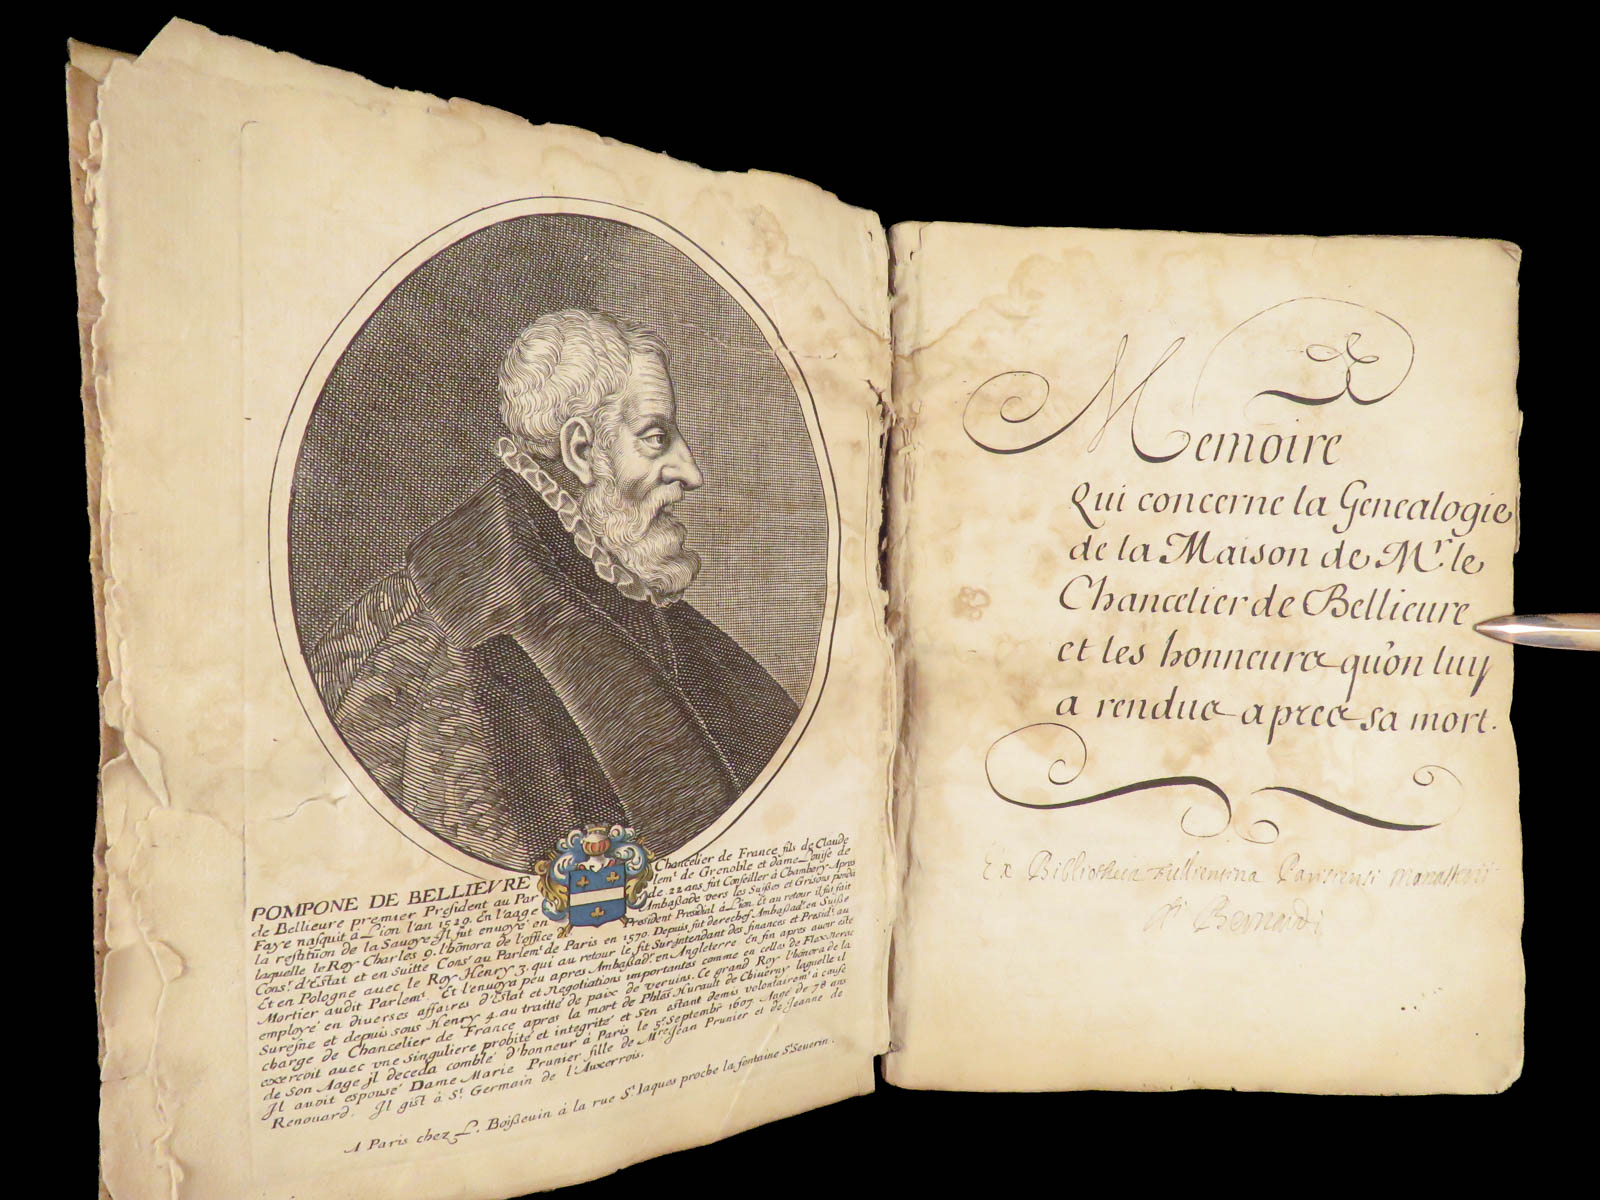 POMPONE DE BELLIEVRE Chancelier de France fils de Claude
de Bellieure premier President au Parlemt. de Grenoble et dame Louise de
Faye nasquit à Lion l'an 1529. En l'aage de 22 ans fut Conseiller à Chambery. Apres
la restitu̅on de la Sauoye Il fut enuoyé en Ambaßade vers les Suißes et Grisons pendā
laquelle le Roy Charles 9. l'hōnora de l'office de President Presidial à Lion Et au retour il fut fait
Consr. d'Estat et en suitte Consr. au Parlemt. de Paris en 1570. Depuis fut derechef Ambaßadr. en Suiße
Et en Pologne auec le Roy Henry 3. qui au retour le fit Surintendant des finances et Presidt. au
Mortier audit Parlemt. Et l'enuoya peu apres Ambaßadr. en Angleterre. En fin apres auoir esté
employé en diuerses affaires d'Estat et Negotiations importantes comme en celles de Flex, Nerac
Suresne et depuis sous Henry 4. au traitté de paix de veruins. Ce grand Roy l'hōnora de la
charge de Chancelier de France apres la mort de Phles Hurault de Chiuerny laquelle il
exerçoit auec vne singuliere probité et integrité et s'en estant demis volontairemt. à cause
de son Aage Il deceda comblé d'honneur à Paris le 5e. Septembr 1607. Aagé de 78 ans
Il auoit espousé Dame Marie Prunier fille de Mre. Jean Prunier et de Jeanne de
Renouard. Il gist à St. Germain de l'Auxerrois.
A Paris chez L. Boißeuin à la rue St. Iaques proche la fontaine St. Seuerin.
Memoire
Qui concerne la Genealogie
de la Maison de Mr. le
Chancelier de Bellieure
et les honneurs qu'on luy
a rendus apres sa mort.
Ex Bibliotheca fullientina Parisiensi monasterii
sti Bernardi